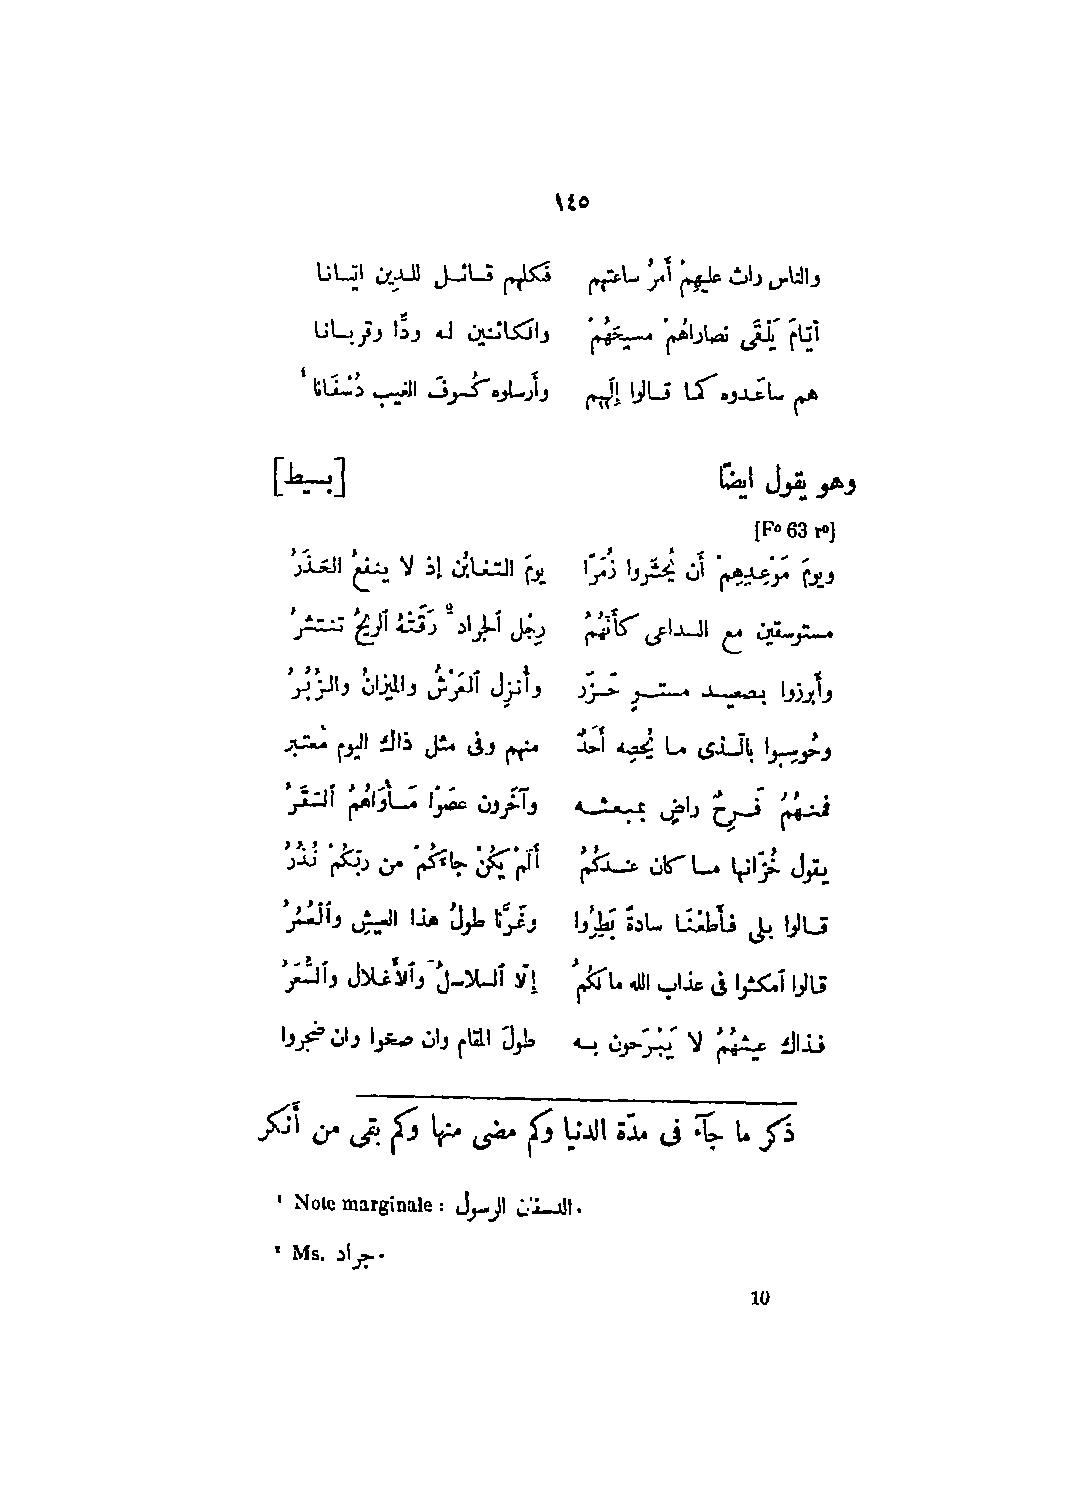 ١٤٥
والناس راث عليهمْ أَمرُ ساعتهم فكلهم قائل للدِين ايّانا
أيّامَ يَلْقَى نصاراهُمْ مسيحَهُمْ والكائنين له ودًّا وقربانا
هم ساعَدوه كما قالوا إلَهِهم وأرسلوه كسُوفَ الغيب دُسْفَانا ¹
وهو يقول ايضًا [بسيط]
[Fº 63 rº]
ويومَ مَوْعِدِهِمْ أن يُحْشَروا زُمَرًا يومَ التغابُن إذ لا ينفعُ الحَذَرُ
مستوسقين مع الداعى كأنّهُمُ رِجْل ٱلجراد ² زَقَتْهُ ٱلريحُ تنتشرُ
وأُبرزوا بصعيد مستوٍ جَرَزٍ وأُنزِل ٱلعَرْشُ والميزانُ والزُبُرُ
وحُوسِبوا بالّذى ما يُحْصِه أَحَدٌ منهم وفى مثل ذاك اليوم مُعتبر
فمنهُمُ فَرِحٌ راضٍ بمبعثه وآخَرون عصَوْا مَأْوَاهُمُ ٱلسَقَرُ
يقول خُزّانها ما كان عندكُمُ أَلَمْ يكُنْ جاءَكُمْ من ربّكمْ نُذُرُ
قالوا بلى فأَطعْنَا سادةً بَطِرُوا وغَرَّنا طولُ هذا العيشِ وٱلْعُمُرُ
قالوا ٱمكثوا فى عذاب الله ما لكُمُ إلّا ٱلسلاسلُ وٱلأَغلال وٱلسُّعُرُ
فذاك عيشهُمُ لا يَبْرَحون به طولَ المقام وان صحّوا وان ضجروا
ذكر ما جآءَ فى مدّة الدنيا وكم مضى منها وكم بقى من أنكر
¹ Note marginale : الدسفان الرسول.
² Ms. جراد.
10